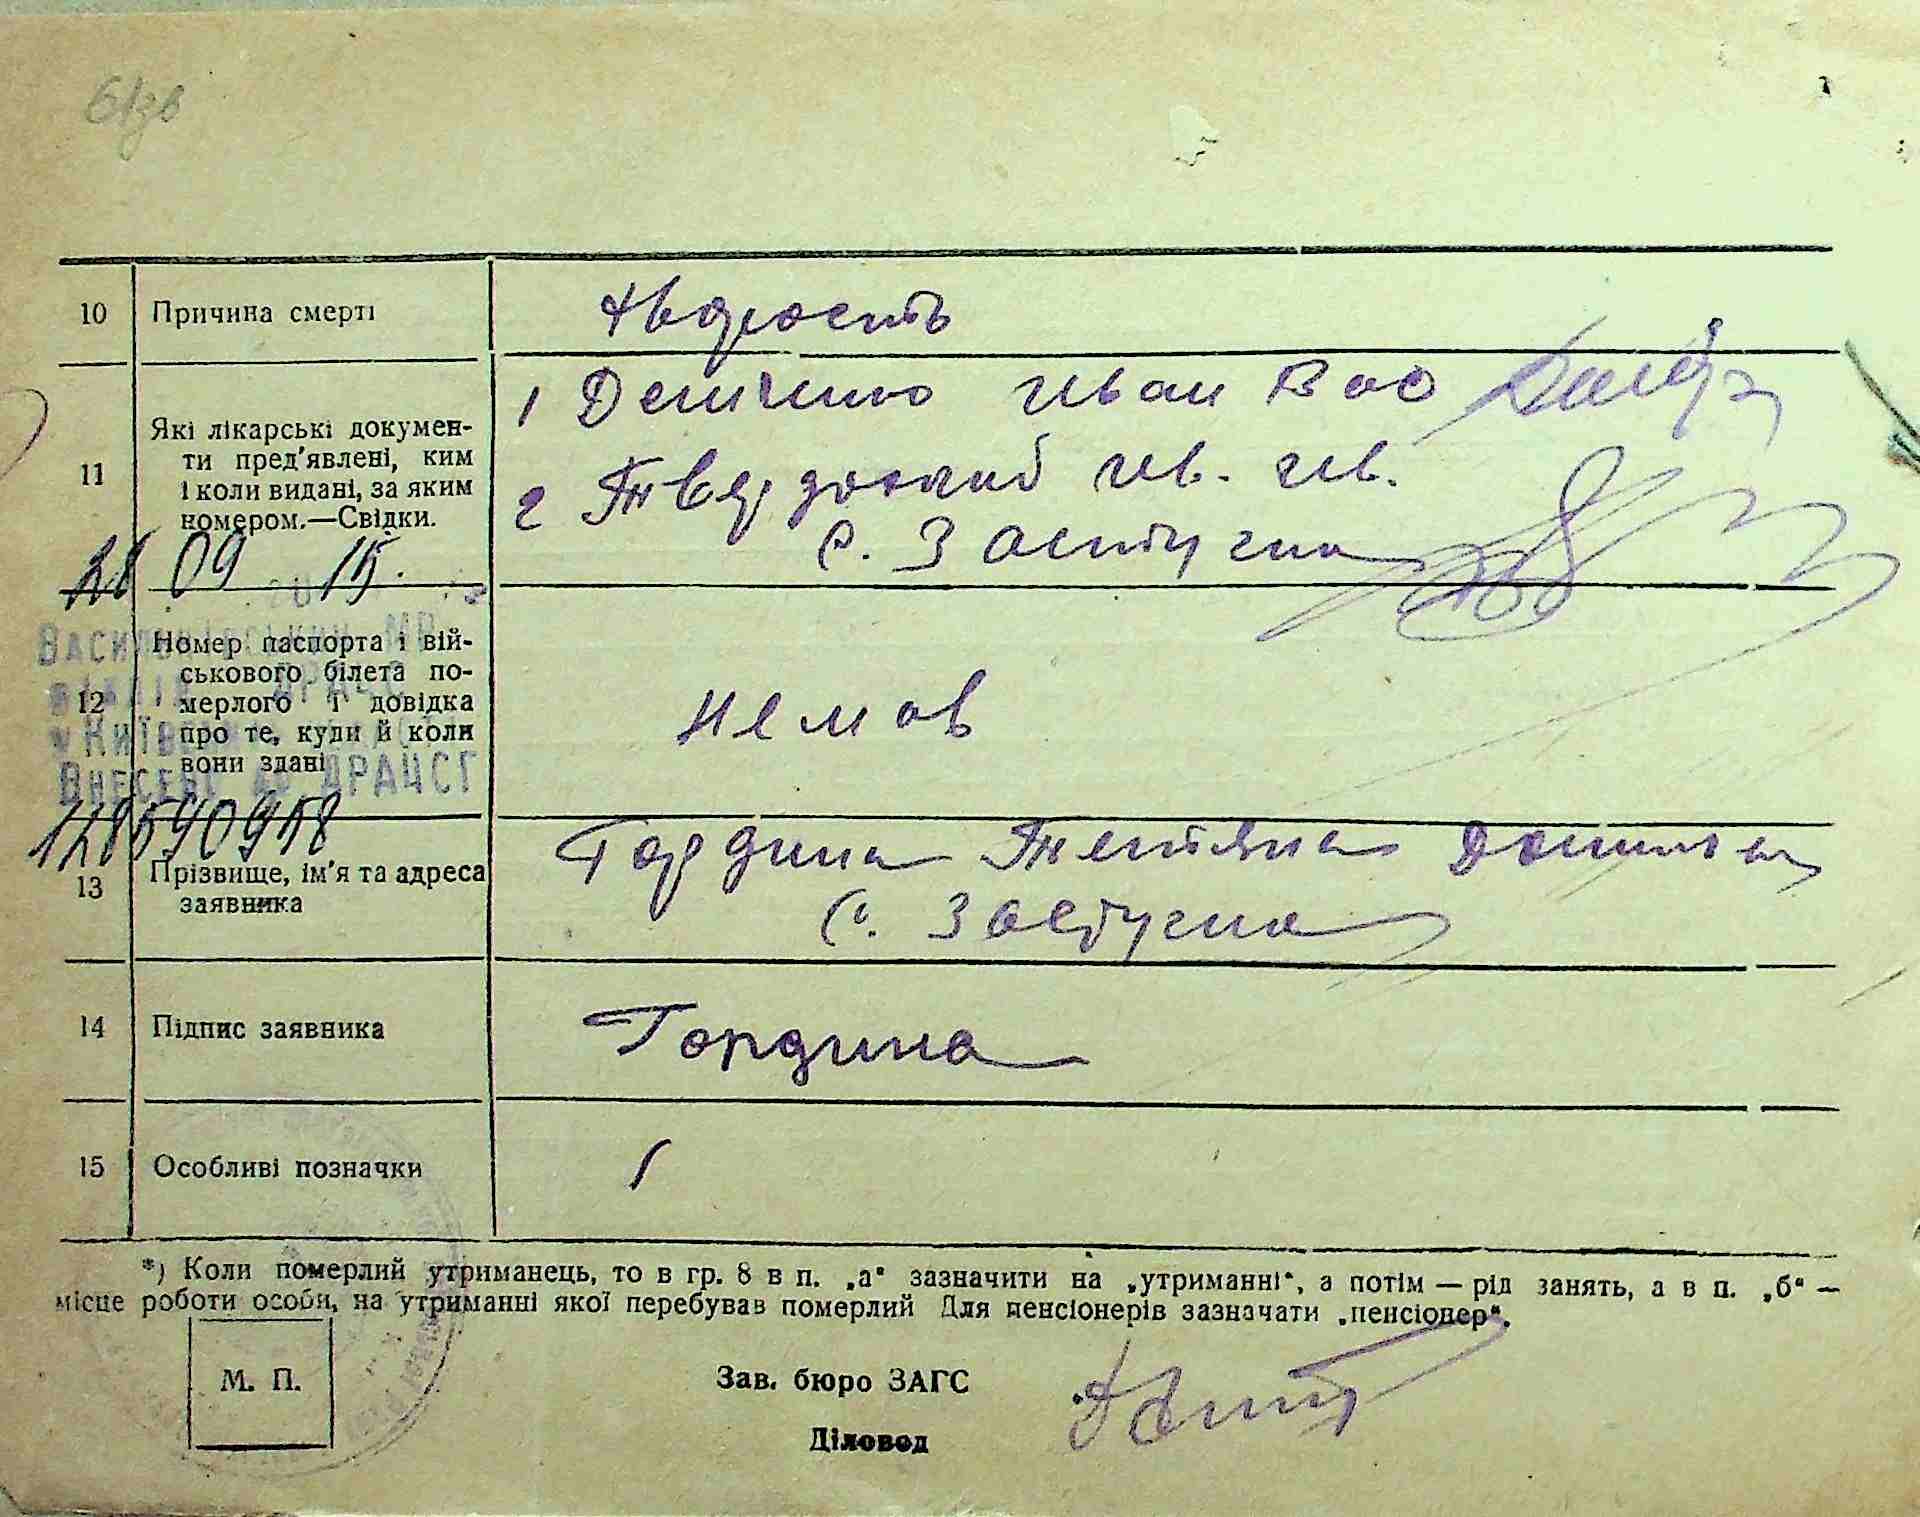 6/зв
10 Причина смерті
11 Які лікарські докумен-
ти пред'явлені, ким
і коли видані, за яким
номером.—Свідки.
1 Иван Вас
2 Ив. Ив.
с. Застугна
28 09 15.
Василківський
12 Номер паспорта і вій-
ськового білета по-
мерлого і довідка
про те, куди й коли
вони здані
немав
Внесені до ДРАЦСГ
128590958
13 Прізвище, ім'я та адреса
заявника
Гордина Тетяна
с. Застугна
14 Підпис заявника
Гордина
15 Особливі позначки
*) Коли померлий утриманець, то в гр. 8 в п. „а“ зазначити на „утриманні“, а потім — рід занять, а в п. „б“ —
місце роботи особи, на утриманні якої перебував померлий Для пенсіонерів зазначати „пенсіонер“.
М. П.
Зав. бюро ЗАГС
Діловод